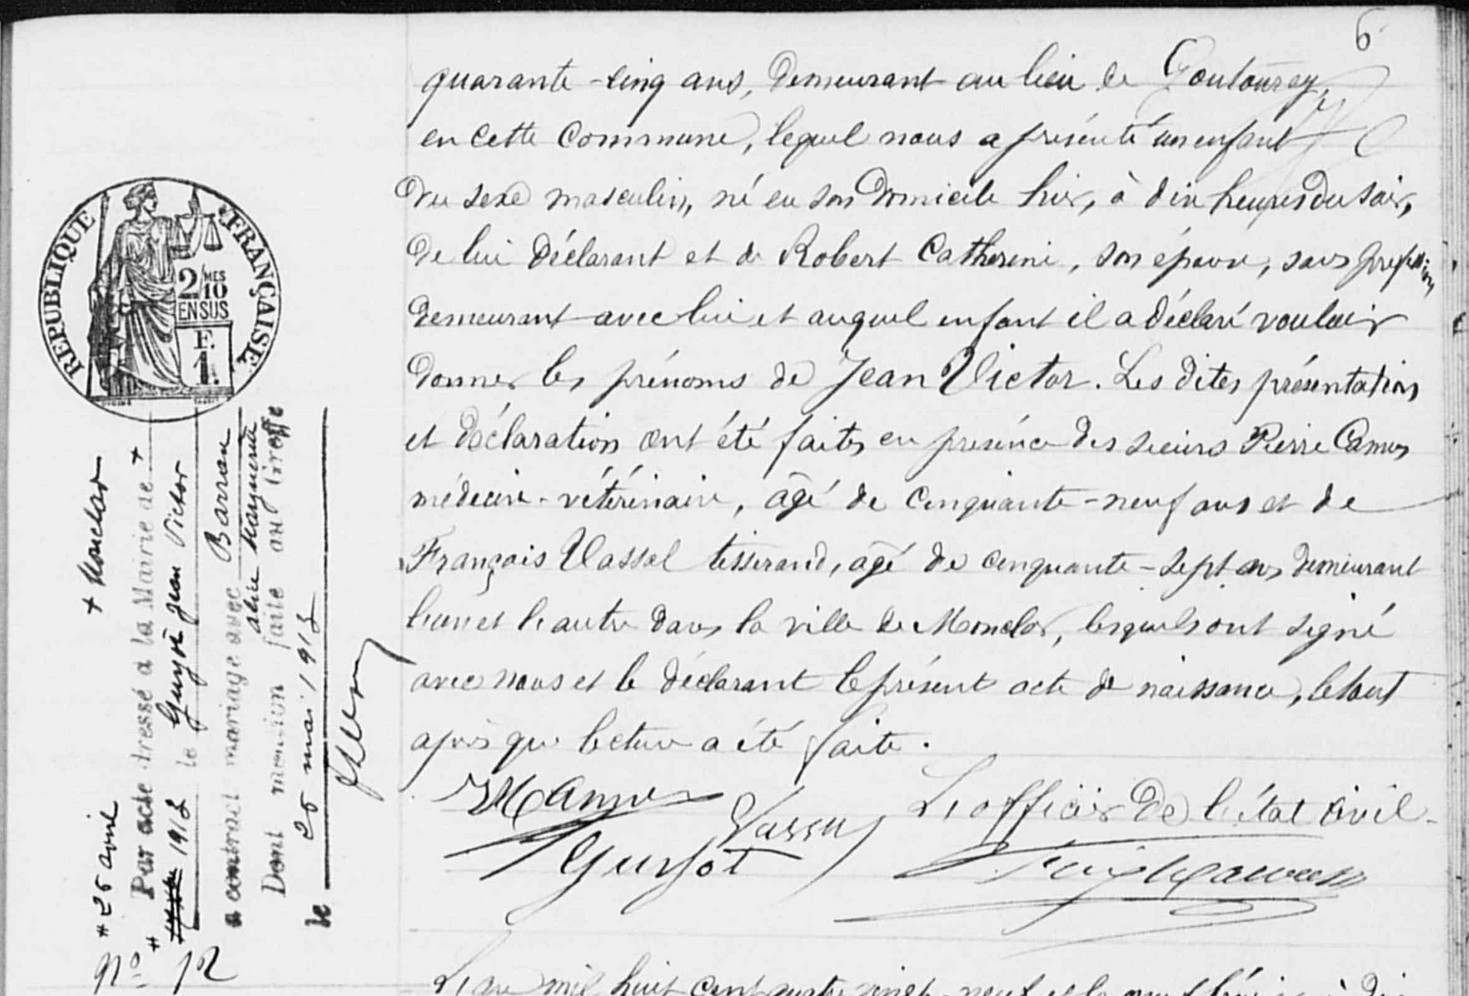 6
quarante-cinq ans, demeurant au lieu de
en cette commune, lequel nous a présenté un enfant
du sexe masculin, né en son domicile hier, à dix heures du soir,
de lui déclarant et de Robert Catherine, son épouse, sans profession
demeurant avec lui et auquel enfant il a déclaré vouloir
donner les prénoms de Jean Victor. Les dites présentation
et déclaration ont été faites en présence des sieurs Pierre Camus
médecin-vétérinaire, âgé de cinquante-neuf ans et de
François Vassal tisserand, âgé de cinquante-sept ans demeurant
l'un et l'autre dans la ville de Monclar, lesquels ont signé
avec nous et le déclarant le présent acte de naissance, le tout
après que lecture a été faite.
Vassal
L'officier de l'état civil.
Guyot
RÉPUBLIQUE FRANÇAISE
2/10 MES
EN SUS
F.
1.
+ Monclar
# 26 avril
Par acte dressé à la Mairie de +
# 1913 le Guyot Jean Victor
a contracté mariage avec Barran
Dont mention faite au Greffe
le 26 mai 1913
N° 12
L'an mil huit cent quatre vingt-neuf et le neuf